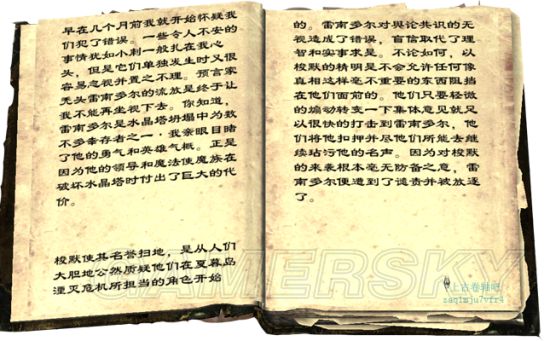 早在几个月前我就开始怀疑我
们犯了错误。一些令人不安的
事情犹如小刺一般扎在我心
头，但是它们单独发生时又很
容易忽视并置之不理。预言家
无头雷南多尔的流放是终于让
我不能再坐视下去。你知道，
雷南多尔是水晶塔坍塌中为数
不多幸存者之一·我亲眼目睹
了他的勇气和英雄气概。正是
因为他的领导和魔法使魔族在
破坏水晶塔时付出了巨大的代
价。
梭默使其名誉扫地，是从人们
大胆地公然质疑他们在夏暮岛
湮灭危机所担当的角色开始
的。雷南多尔对舆论共识的无
视造成了错误，盲信取代了理
智和实事求是。不论如何，以
梭默的精明是不会允许任何像
真相这样毫不重要的东西阻挡
在他们面前的。他们只要轻微
的煽动转变一下集体意见就足
以很快的打击到雷南多尔，他
们将他扣押并尽他们所能去继
续玷污他的名声。因为对梭默
的来袭根本毫无防备之意，雷
南多尔便遭到了谴责并被放逐
了。
GAMERSKY
上古卷轴吧
zaq1mju7vfr4